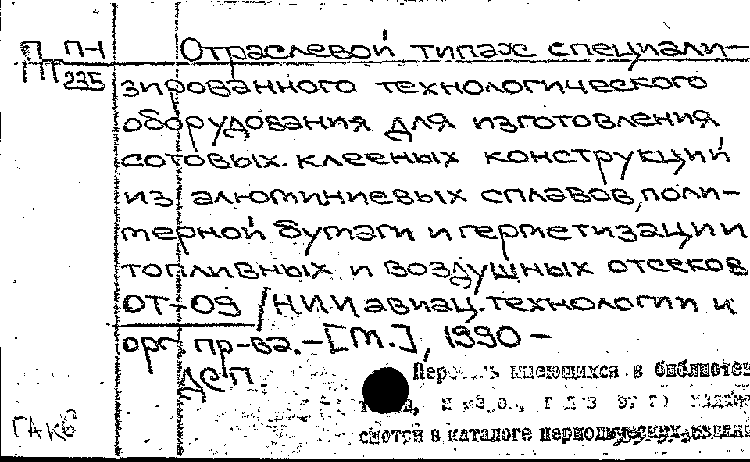 П П-1 Отраслевой типаж специали-
ПТ 235 зированного технологического
оборудования для изготовления
сотовых клееных конструкций
из алюминиевых сплавов, поли-
мерной бумаги и герметизации
топливных и воздушных отсеков
ОТ-09 / НИИ авиац. технологии и
орг. пр-ва. – [М.], 1990 –
ДСП.
имеющихся в библиотеке
смотри в каталоге периодических
ГАК6